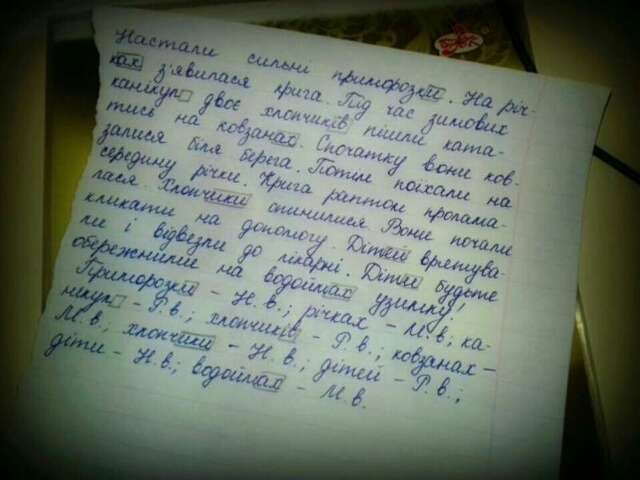 Настали сильні приморозки. На річ-
ках з'явилася крига. Під час зимових
канікул двоє хлопчиків пішли ката-
тись на ковзанах. Спочатку вони ков-
залися біля берега. Потім поїхали на
середину річки. Крига раптом пролама-
лася. Хлопчики опинилися. Вони почали
кликати на допомогу. Дітей врятува-
ли і відвезли до лікарні. Діти будьте
обережними на водоймах узимку!
Приморозки – Н. в.; річках – М. в; ка-
нікул – Р. в.; хлопчиків – Р. в.; ковзанах –
М. в; хлопчики – Н. в.; дітей – Р. в.;
діти – Н. в.; водоймах – М. в.